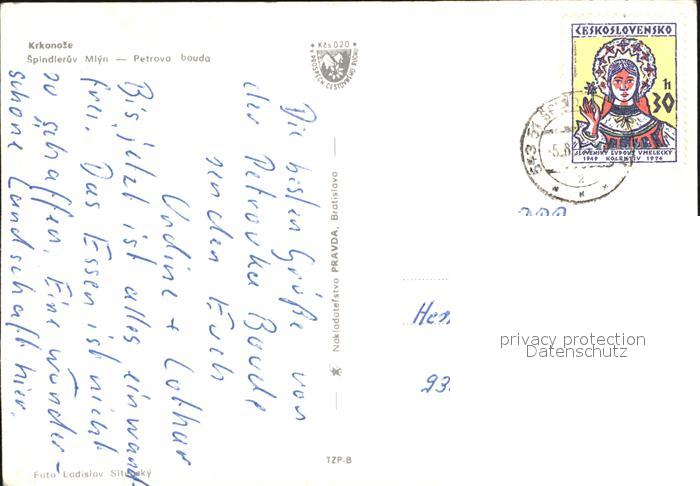 Krkonoše
Špindlerův Mlýn — Petrova bouda
Kčs 0,20
V PROSPĚCH CESTOVNÍHO RUCHU
ČESKOSLOVENSKO
30 h
SLOVENSKÝ ĽUDOVÝ UMELECKÝ
1949 KOLEKTÍV 1974
543 51 ŠPIND
-5.8
2
Die besten Grüße von
der Petrovka Boude
senden Euch
Undine + Lothar
Bis jetzt ist alles einwand
frei. Das Essen ist nicht
zu schaffen. Eine wunder-
schöne Landschaft hier.
Nakladateľstvo PRAVDA, Bratislava
TZP-B
Foto Ladislav Sitenský
Hen
93
privacy protection
Datenschutz